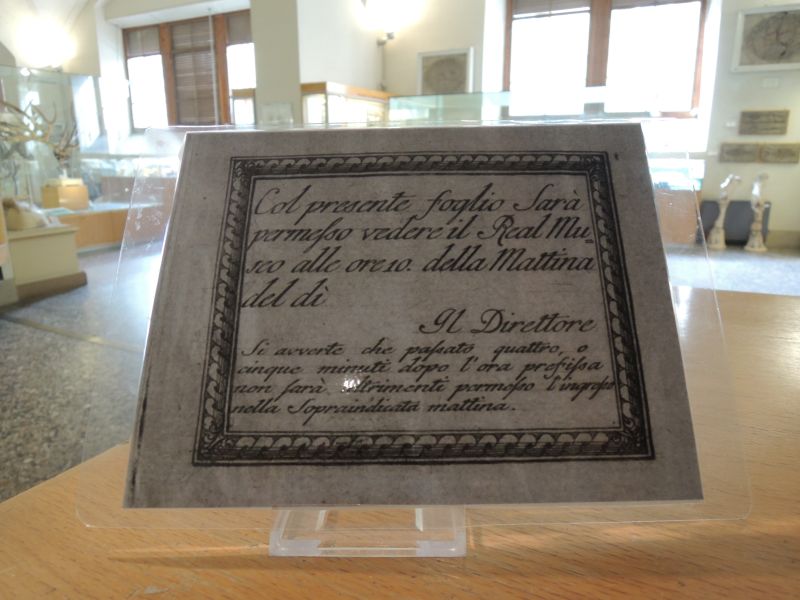 Col presente foglio Sarà
permesso vedere il Real Mu=
seo alle ore 10. della Mattina
del dì
Il Direttore
Si avverte che passato quattro, o
cinque minuti dopo l'ora prefissa
non sarà altrimenti permesso l'ingresso
nella Sopraindicata mattina.